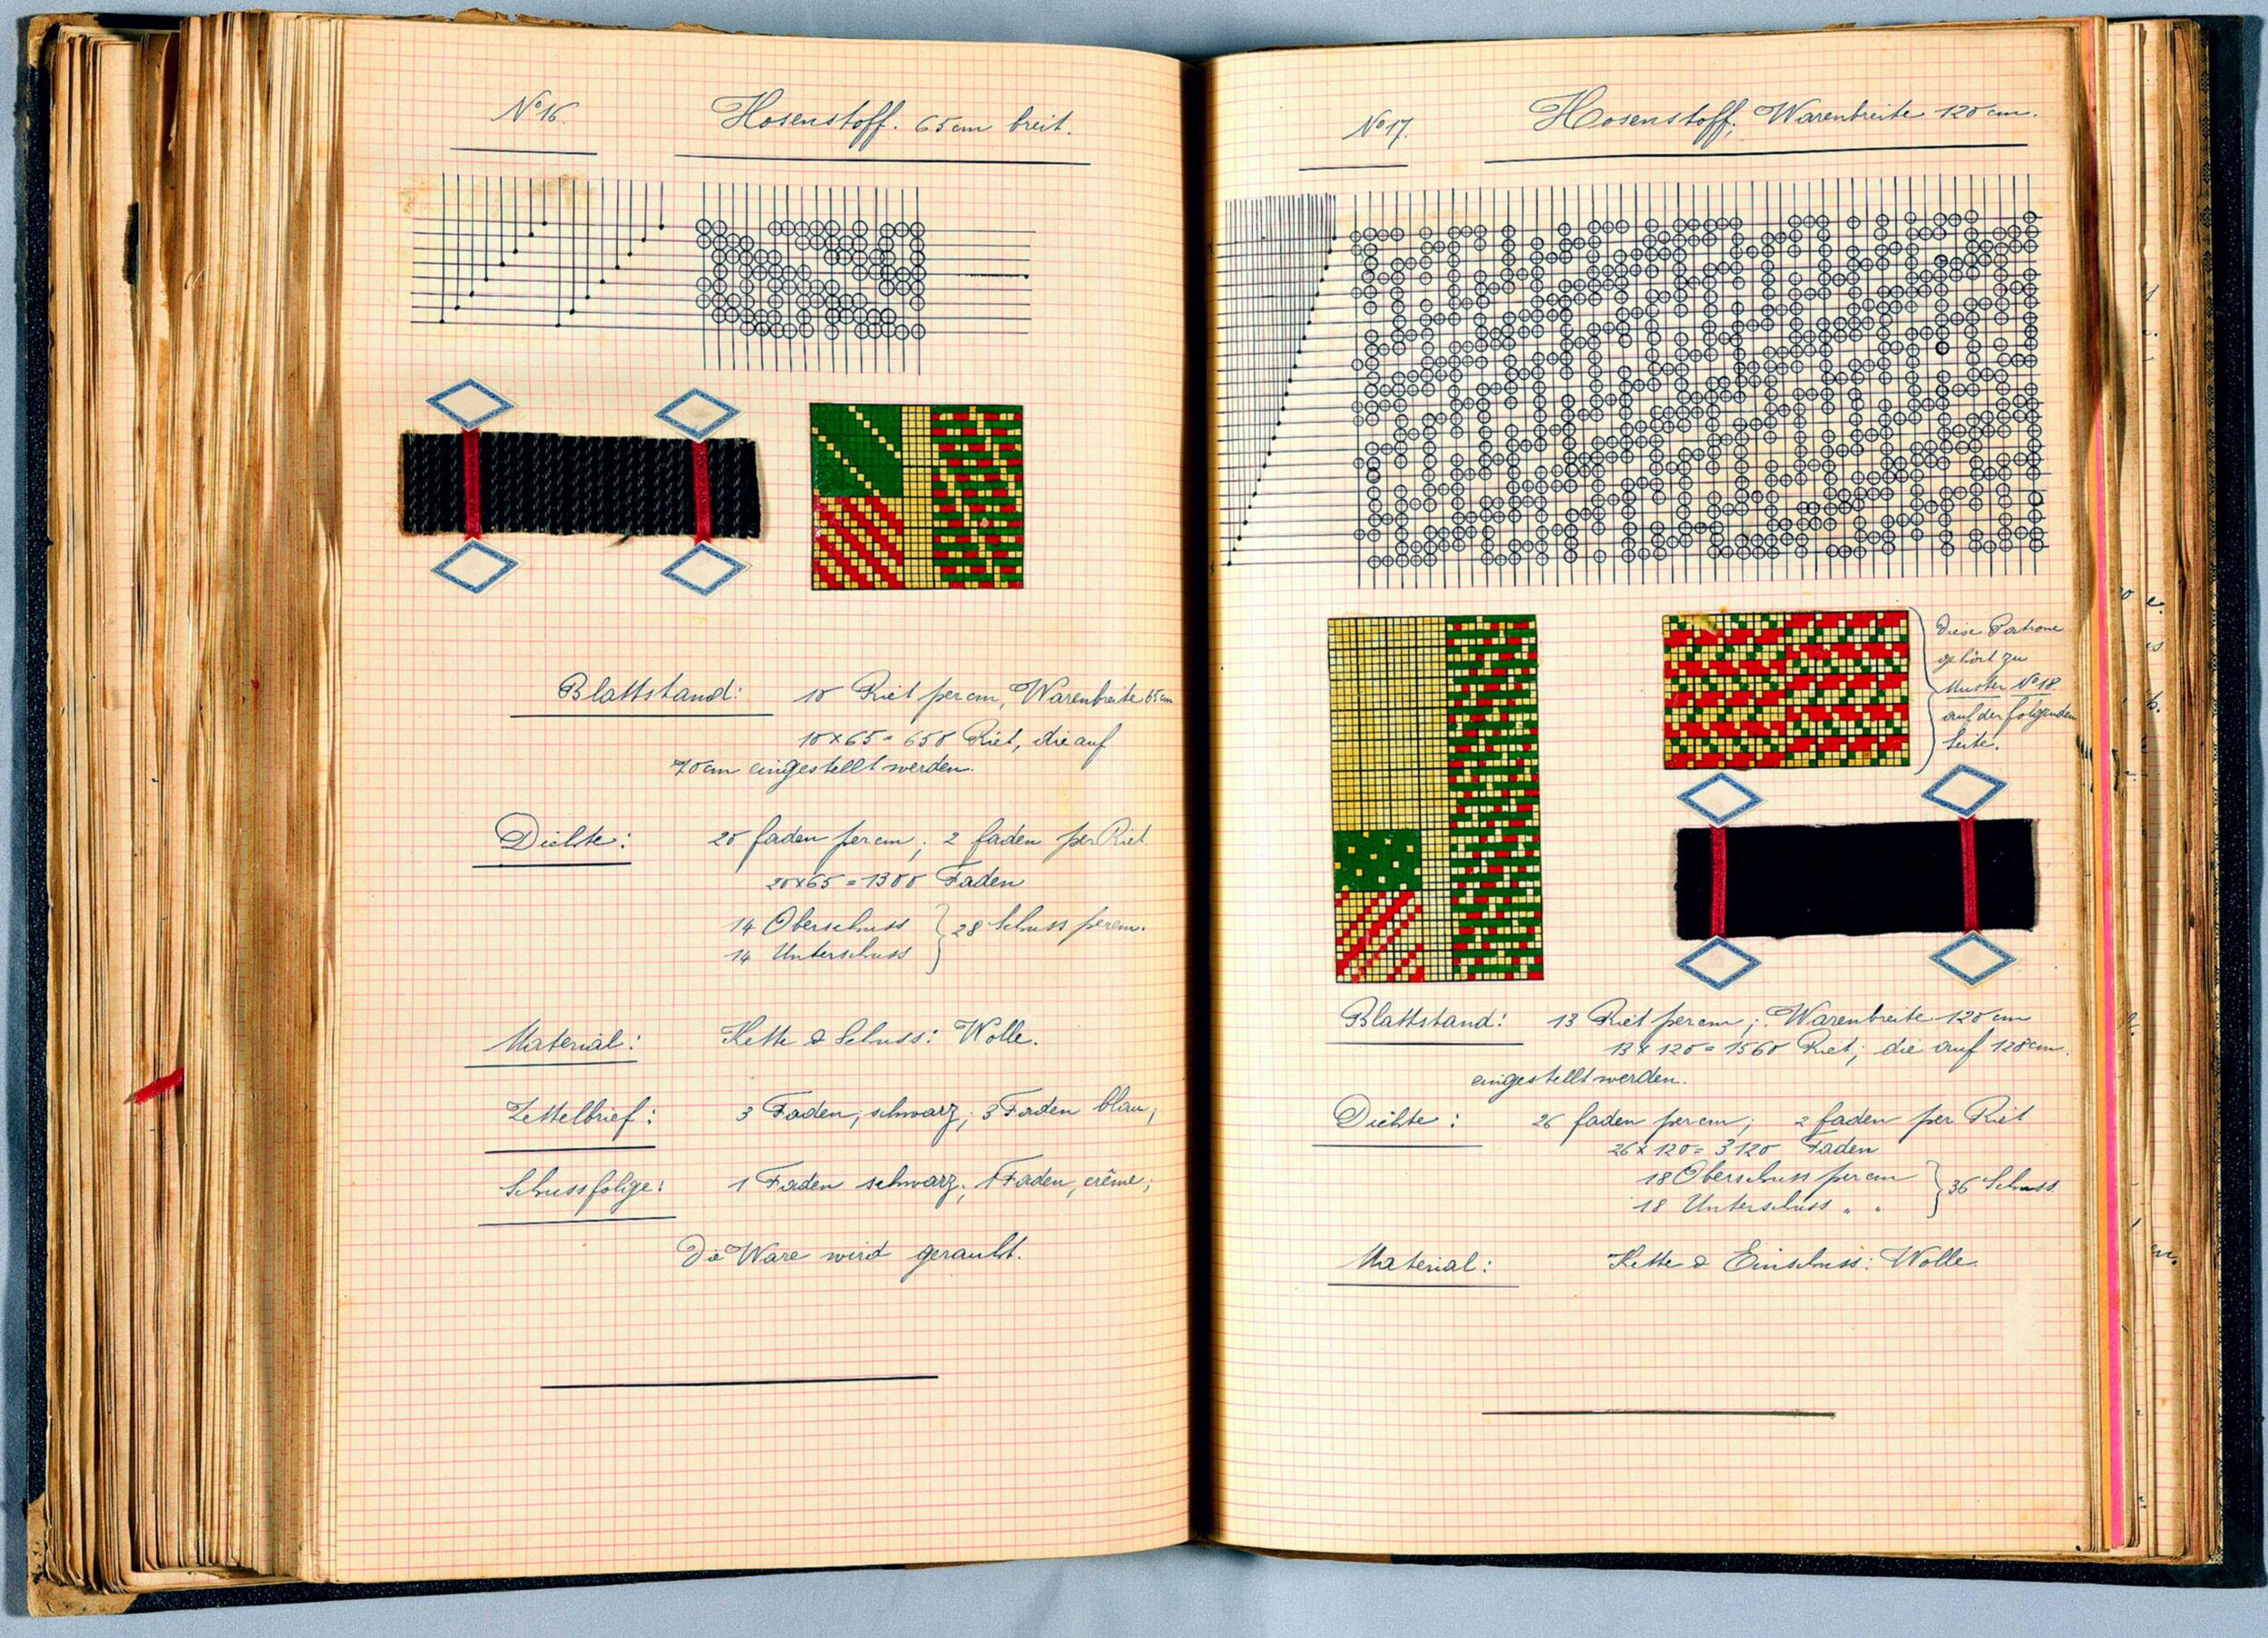 Nº 16.
Hosenstoff. 65cm breit.
Blattstand: 10 Riet per cm, Warenbreite 65cm
10x65 = 650 Riet, die auf
70cm eingestellt werden.
Dichte: 20 faden per cm; 2 faden per Riet
20x65 = 1300 Faden
14 Oberschuss } 28 Schuss per cm.
14 Unterschuss
Material: Kette & Schuss: Wolle.
Zettelbrief: 3 Faden, schwarz; 3 Faden blau;
Schussfolge: 1 Faden schwarz; 1 Faden, crême;
Die Ware wird gerauht.
Nº 17.
Hosenstoff; Warenbreite 120 cm.
Diese Patrone
gehört zu
Muster Nº 18
auf der folgenden
Seite.
Blattstand: 13 Riet per cm; Warenbreite 120 cm
13 x 120 = 1560 Riet; die auf 128cm.
eingestellt werden.
Dichte: 26 faden per cm; 2 faden per Riet
26 x 120 = 3120 Faden
18 Oberschuss per cm } 36 Schuss
18 Unterschuss " "
Material: Kette & Einschuss: Wolle.